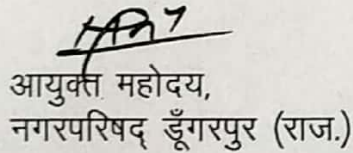 आयुक्त महोदय,
नगरपरिषद् डूँगरपुर (राज.)